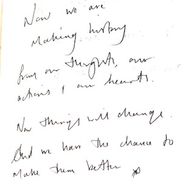 Now we are
making history
from our thoughts, our
actions & our hearts.
Now things will change.
And we have the chance to
make them better